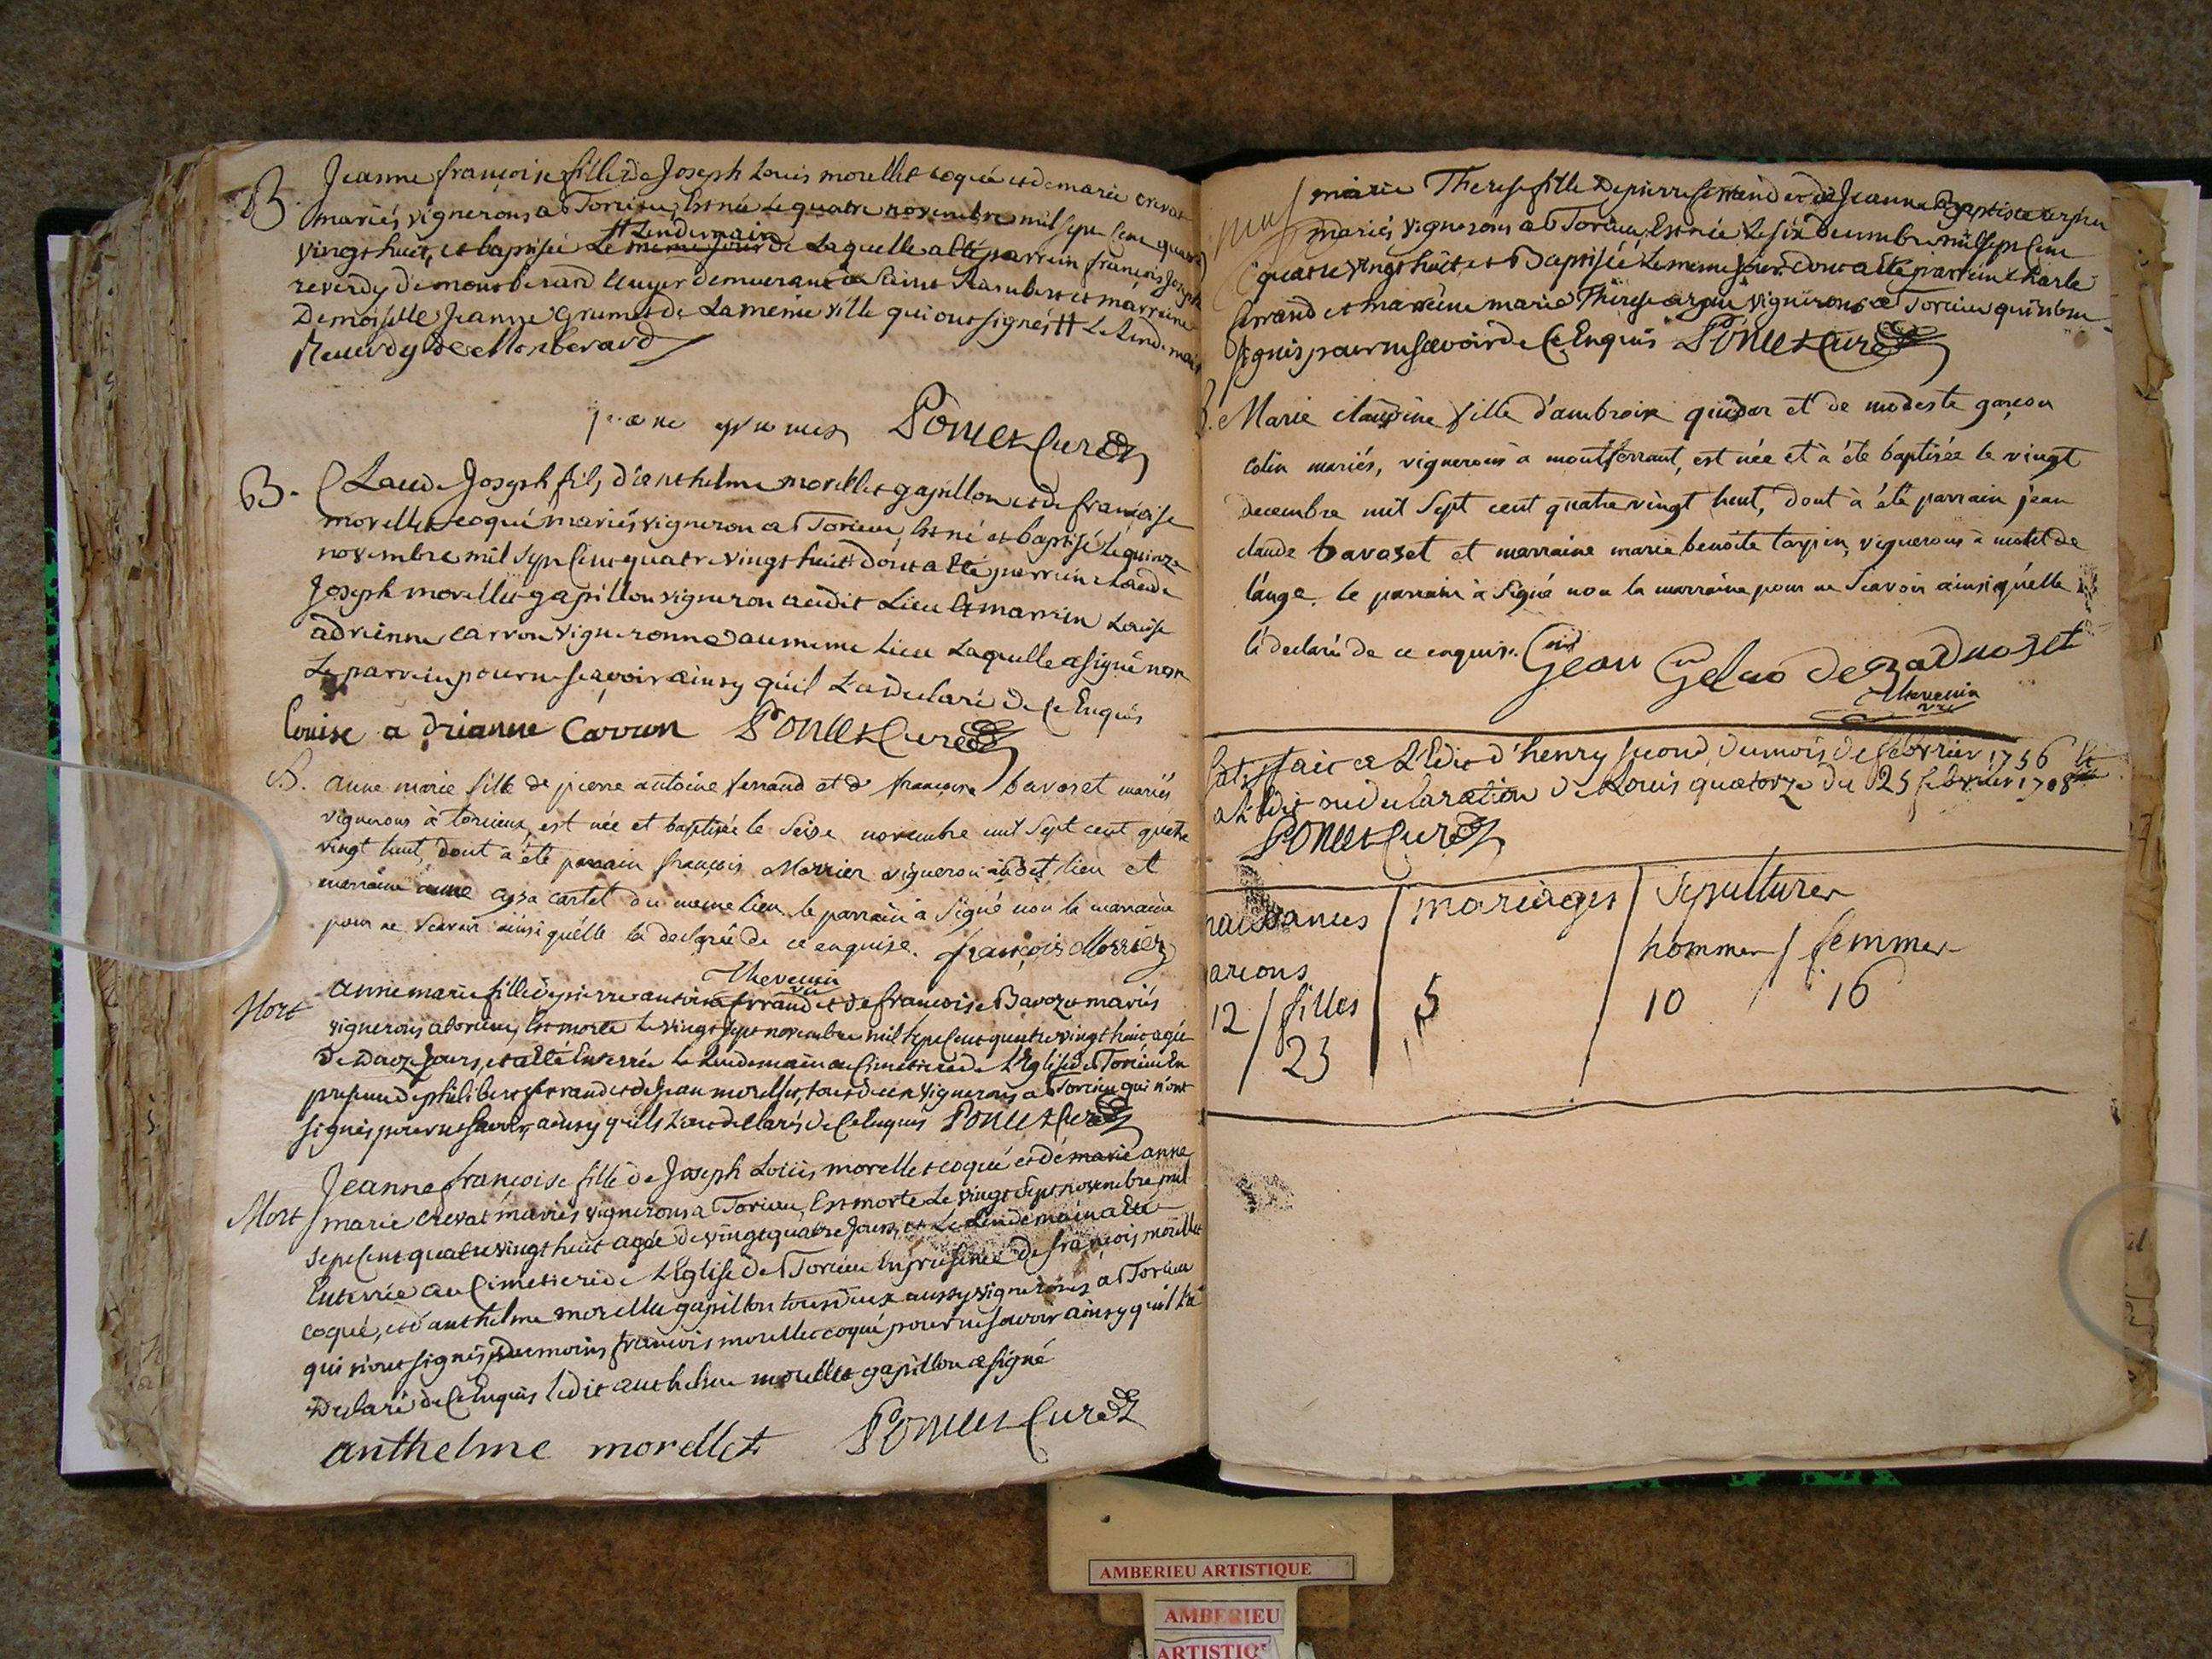 B. Jeanne françoise fille de Joseph Louis morellet coqué et de marie crevat
mariés vignerons a Torcieu, Est née Le quatre novembre mil sept Cent quatre
vingt huit, et baptisée Le meme jour de Laquelle a Eté parrein françois Joseph
# Lendemain
reverdy de montberard Ecuyer demeurant a Saint Rambert et marreine
Demoiselle Jeanne Grumet de La meme ville qui ont signés # Le Lendemain
Reverdy de Monberard
jeane grumet Poncet Curé
B. Claude Joseph fils d'anthelme morellet gapillon et de françoise
morellet coqué mariés vigneron a Torcieu, Est né et baptisé Le quinze
novembre mil sept Cent quatre vingt huit dont a Eté parrein claude
Joseph morellet gapillon vigneron audit Lieu Et marrein Louise
adrienne carron vigneronne au meme Lieu Laquelle a signé non
Le parrein pour ne scavoir ainsy qu'il L'a declaré de Ce Enquis
louise adrianne Carron Poncet Curé
B. anne marie fille de pierre antoine ferrand et de françoise bavoset mariés
vignerons à torcieux, est née et baptisée le Seize novembre mil Sept cent quatre
vingt huit, dont à été parrain françois Morrier vigneron audit lieu et
marraine anne cartet du meme lieu le parrain à Signé non la marraine
pour ne Scavoir ainsi qu'élle la declarée de ce enquise. françois Morrier
Thevenin
vic
Mort anne marie fille de pierre antoine ferrand et de françoise Bavozet mariés
vignerons a torcieu, Est morte Le vingt sept novembre mil sept Cent quatre vingt huit agée
de Douze Jours, et a Eté Enterrée Le Lendemain au Cimetiere de L'Eglise de Torcieu En
presence de philibert ferrand et de Jean morellet, tous deux vignerons a Torcieu qui n'ont
signés pour ne scavoir, ainsy quils L'ont declarés de Ce Enquis Poncet Curé
Jeanne françoise fille de Joseph Louis morellet coqué et de marie anne
Mort marie crevat mariés vignerons a Torcieu, Est morte Le vingt Sept novembre mil
sept Cent quatre vingt huit agée de vingt quatre Jours, et Le Lendemain a Eté
Enterrée au Cimetiere de L'Eglise de Torcieu En presence de françois morellet
coqué, et d'anthelme morellet gapillon tous deux aussy vignerons a Torcieu
qui n'ont signés du moins françois morellet coqué pour ne scavoir ainsy quil L'a
Declaré de Ce Enquis Ledit anthelme morellet gapillon a signé
anthelme morellet Poncet Curé
marie Therese fille de pierre ferrand et de Jeanne Baptiste
mariés vignerons a Torcieu, Est née Le six Decembre mil sept Cent
quatre vingt huit, et Baptisée Le meme Jour dont a Eté parrein charle
ferrand et marreine marie Thérese vignerons a Torcieu qui n'ont
signés pour ne scavoir de Ce Enquis Poncet Curé
B. Marie claudine fille d'ambroise et de modeste garçon
colin mariés, vignerons à montferrant, est née et à été baptisée le vingt
decembre mil Sept cent quatre vingt huit, dont à été parrain jean
claude bavoset et marraine marie benoite tarpin, vignerons à de
l'ange. le parrain à Signé non la marraine pour ne Scavoir ainsi qu'elle
la declaré de ce enquise. Gean
Thevenin
vic
Satisfait a L'Edit d'henry second, du mois de febvrier 1556 Et
a L'Edit ou declaration de Louis quatorze du 25 febvrier 1708
Poncet Curé
naissances mariages Sepultures
hommes / femmes
arçons
12 / filles 5 10 16
23
AMBERIEU ARTISTIQUE
AMBERIEU
ARTISTIQ